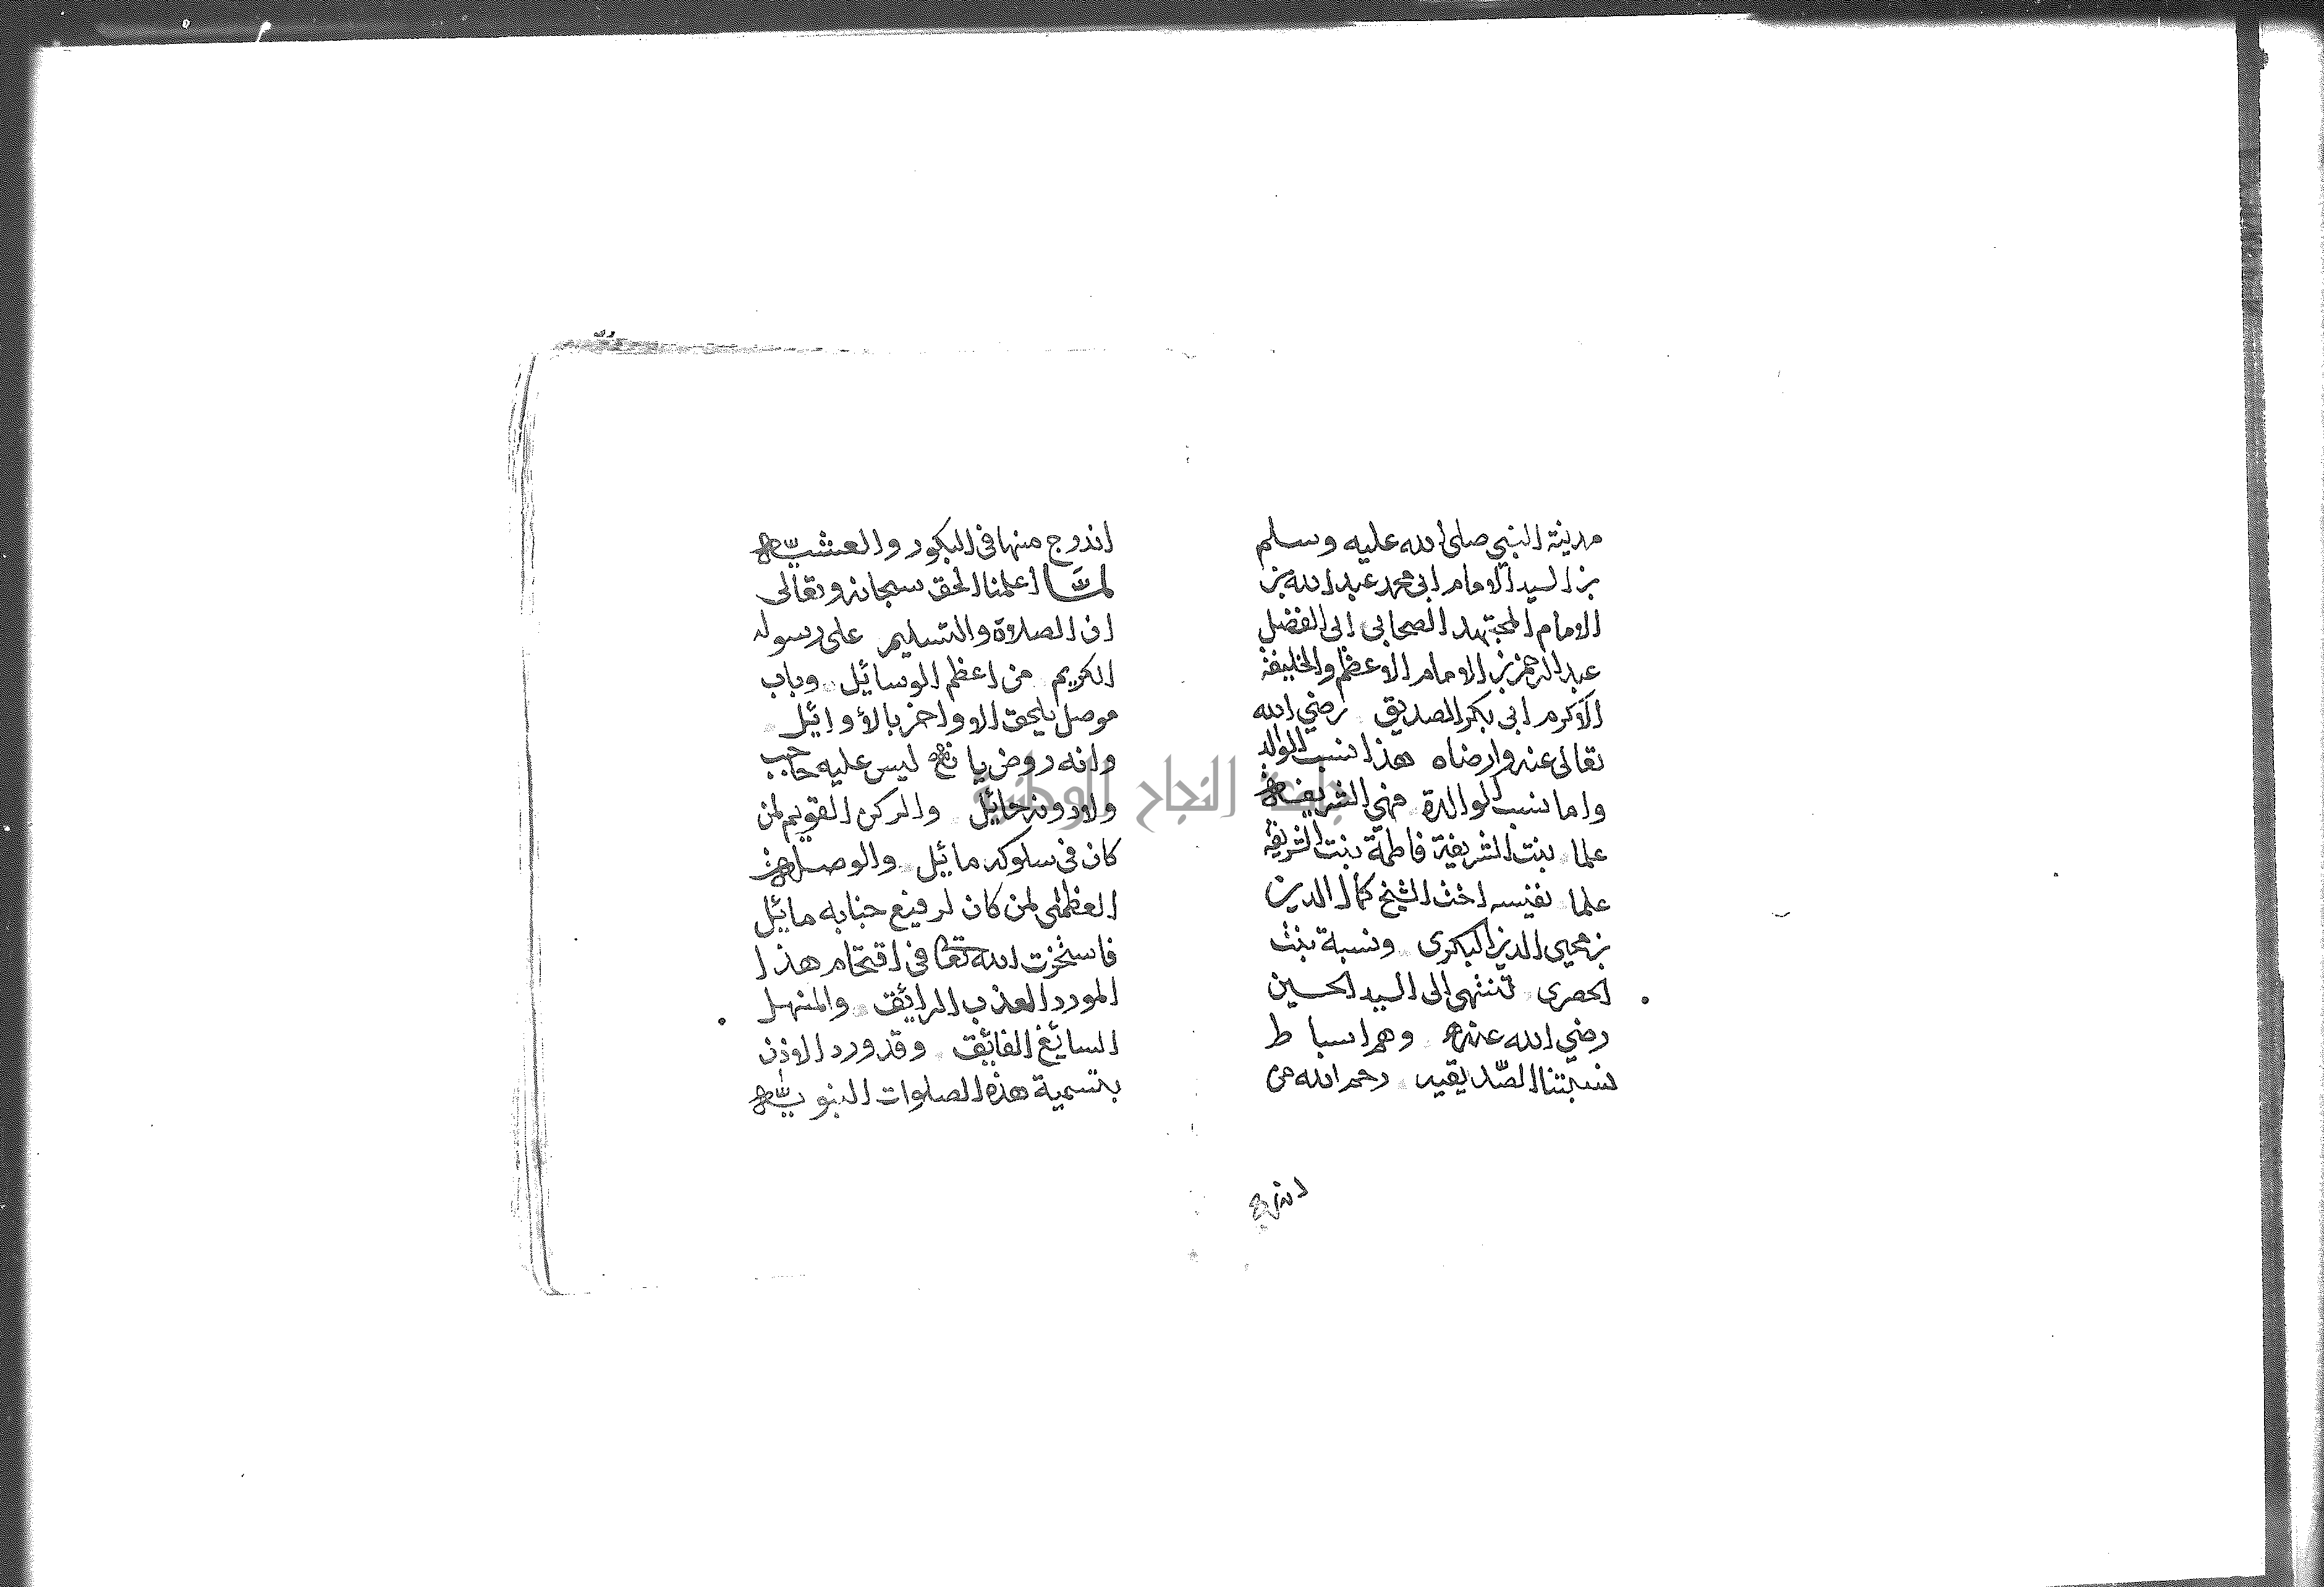 مدينة النبي صلى الله عليه وسلم
بن السيد الامام ابى محمد عبد الله بن
الامام المجتهد الصحابى ابى الفضل
عبد الرحمن بن الامام الاعظم والخليفة
الاكرم ابى بكر الصديق رضي الله
تعالى عنه وارضاه هذا نسب الوالد
واما نسب الوالدة فهي الشريفة
علما بنت الشريفة فاطمة بنت الشريفة
علما نفيسه اخت الشيخ كمال الدين
بن محيى الدين البكرى ونسبة بنت
الحصرى تنتهى الى السيد الحسين
رضي الله عنه وهم اسباط
نسبتنا الصديقيه رحم الله من
اندرج
اندرج منها فى البكور والعشية
لما اعلمنا الحق سبحانه وتعالى
ان الصلاة والتسليم على رسوله
الكريم من اعظم الوسائل وباب
موصل يلحق الاواخر بالأوائل
وانه روض يانع ليس عليه حاجب
ولا دونه حائل والركن القويم لمن
كان فى سلوكه مائل والوصلة
العظمى لمن كان لرفيع جنابه مايل
فاستخرت الله تعا فى اقتحام هذا
المورد العذب الرائق والمنهل
السائغ الفائق وقد ورد الاذن
بتسمية هذه الصلوات النبوية
جامعة النجاح الوطنية